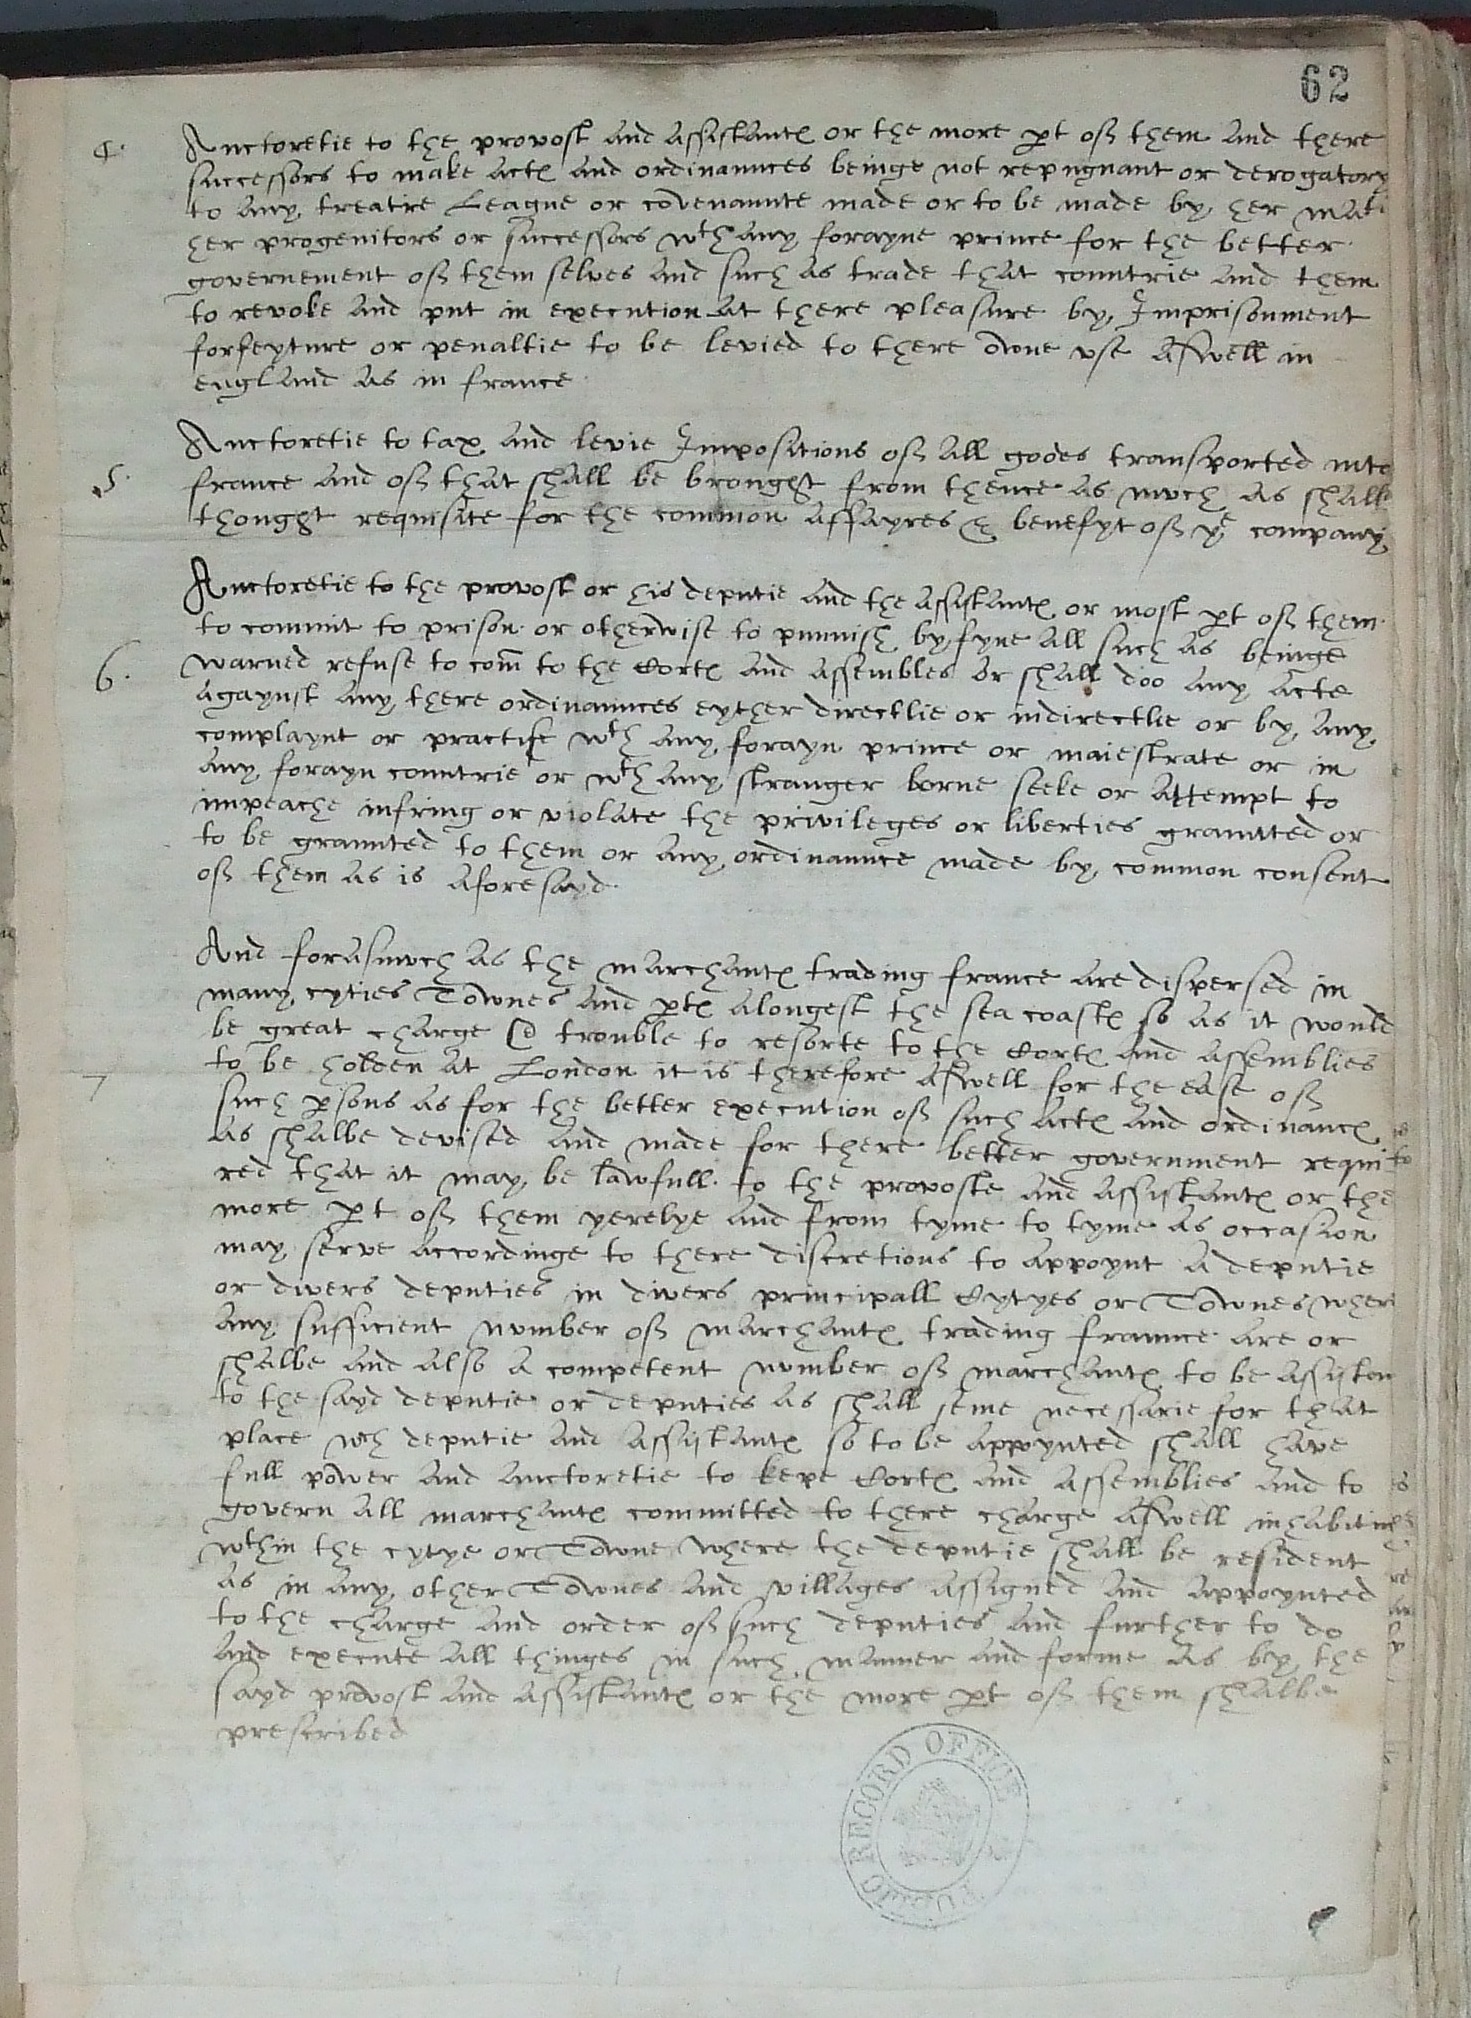 62
4. Auctoretie to the provost and assistantes or the more pt off them and there
successors to make actes and ordinaunces beinge not repugnant or derogatory
to any treatie League or covenaunte made or to be made by her mati
her progenitors or successors wth any forayne prince for the better
governement off them selves and such as trade that countrie and them
to revoke and put in execution at there pleasure by Imprisonment
forfeyture or penaltie to be levied to there owne vse aswell in
england as in france
Auctoretie to tax and levie Impositions off all goodes transported into
5. france and off that shall be brought from thence as much as shalbe
thought requisite for the common affayres & benefyt off ye company
Auctoretie to the provost or his deputie and the assistantes or most pt off them
to commit to prison or otherwise to punnish by fyne all such as beinge
6. warned refuse to com to the Cortes and assembles or shall doo any acte
agaynst any there ordinaunces eyther directlie or indirectlie or by any
complaynt or practise wth any forayn prince or maiestrate or in
any forayn countrie or wth any stranger borne seeke or attempt to
impeache infring or violate the privileges or liberties graunted or
to be graunted to them or any ordinaunce made by common consent
off them as is aforesayd
And forasmuch as the marchantes trading france are dispersed in
many cyties Townes and ptes alongest the sea coastes so as it would
be great charge & trouble to resorte to the Cortes and assemblies
7 to be holden at London it is therefore aswell for the ease off
such psons as for the better execution off such actes and ordinances
as shalbe devised and made for there better government requi
red that it may be lawfull to the provoste and assistantes or the
more pt off them yerelye and from tyme to tyme as occasion
may serve accordinge to there discretions to appoynt a deputie
or divers deputies in divers principall Cytyes or Townes wher
any sufficient number off marchantes trading fraunce are or
shalbe and also a competent number off marchantes to be assisten
to the sayd deputie or deputies as shall seme necessarie for that
place wch deputie and assistantes so to be appoynted shall have
full power and auctoretie to kepe Cortes and assemblies and to
govern all marchantes committed to there charge aswell inhabiting
wthin the cytye or Towne where the deputie shall be resident
as in any other Townes and villages assigned and appoynted
to the charge and order off such deputies and further to do
and execute all thinges in such manner and forme as by the
sayd provost and assistantes or the more pt off them shalbe
prescribed
PUBLIC RECORD OFFICE